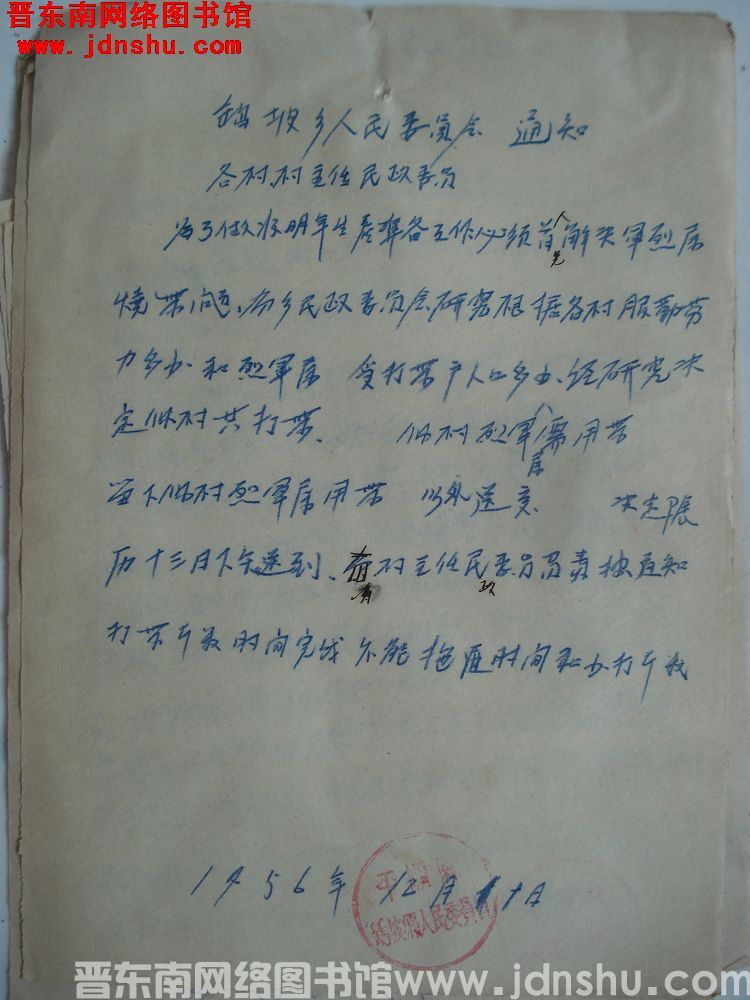 晋东南网络图书馆
www.jdnshu.com
坡乡人民委员会 通知
各村村主任民政委员
为了做好明年生产准备工作必须首先解决军烈属
烧柴问题、为乡民政委员会研究根据各村服勤劳
力多少和烈军属 受打柴户人口多少、经研究决
定你村共打柴 你村烈军属需用柴
以外送交 决定
历十三日下午送到、村主任民政委员负责按通知
打柴斤数时间完成不能拖延时间和少打斤数
1956年12月 日
人民委员会
晋东南网络图书馆www.jdnshu.com